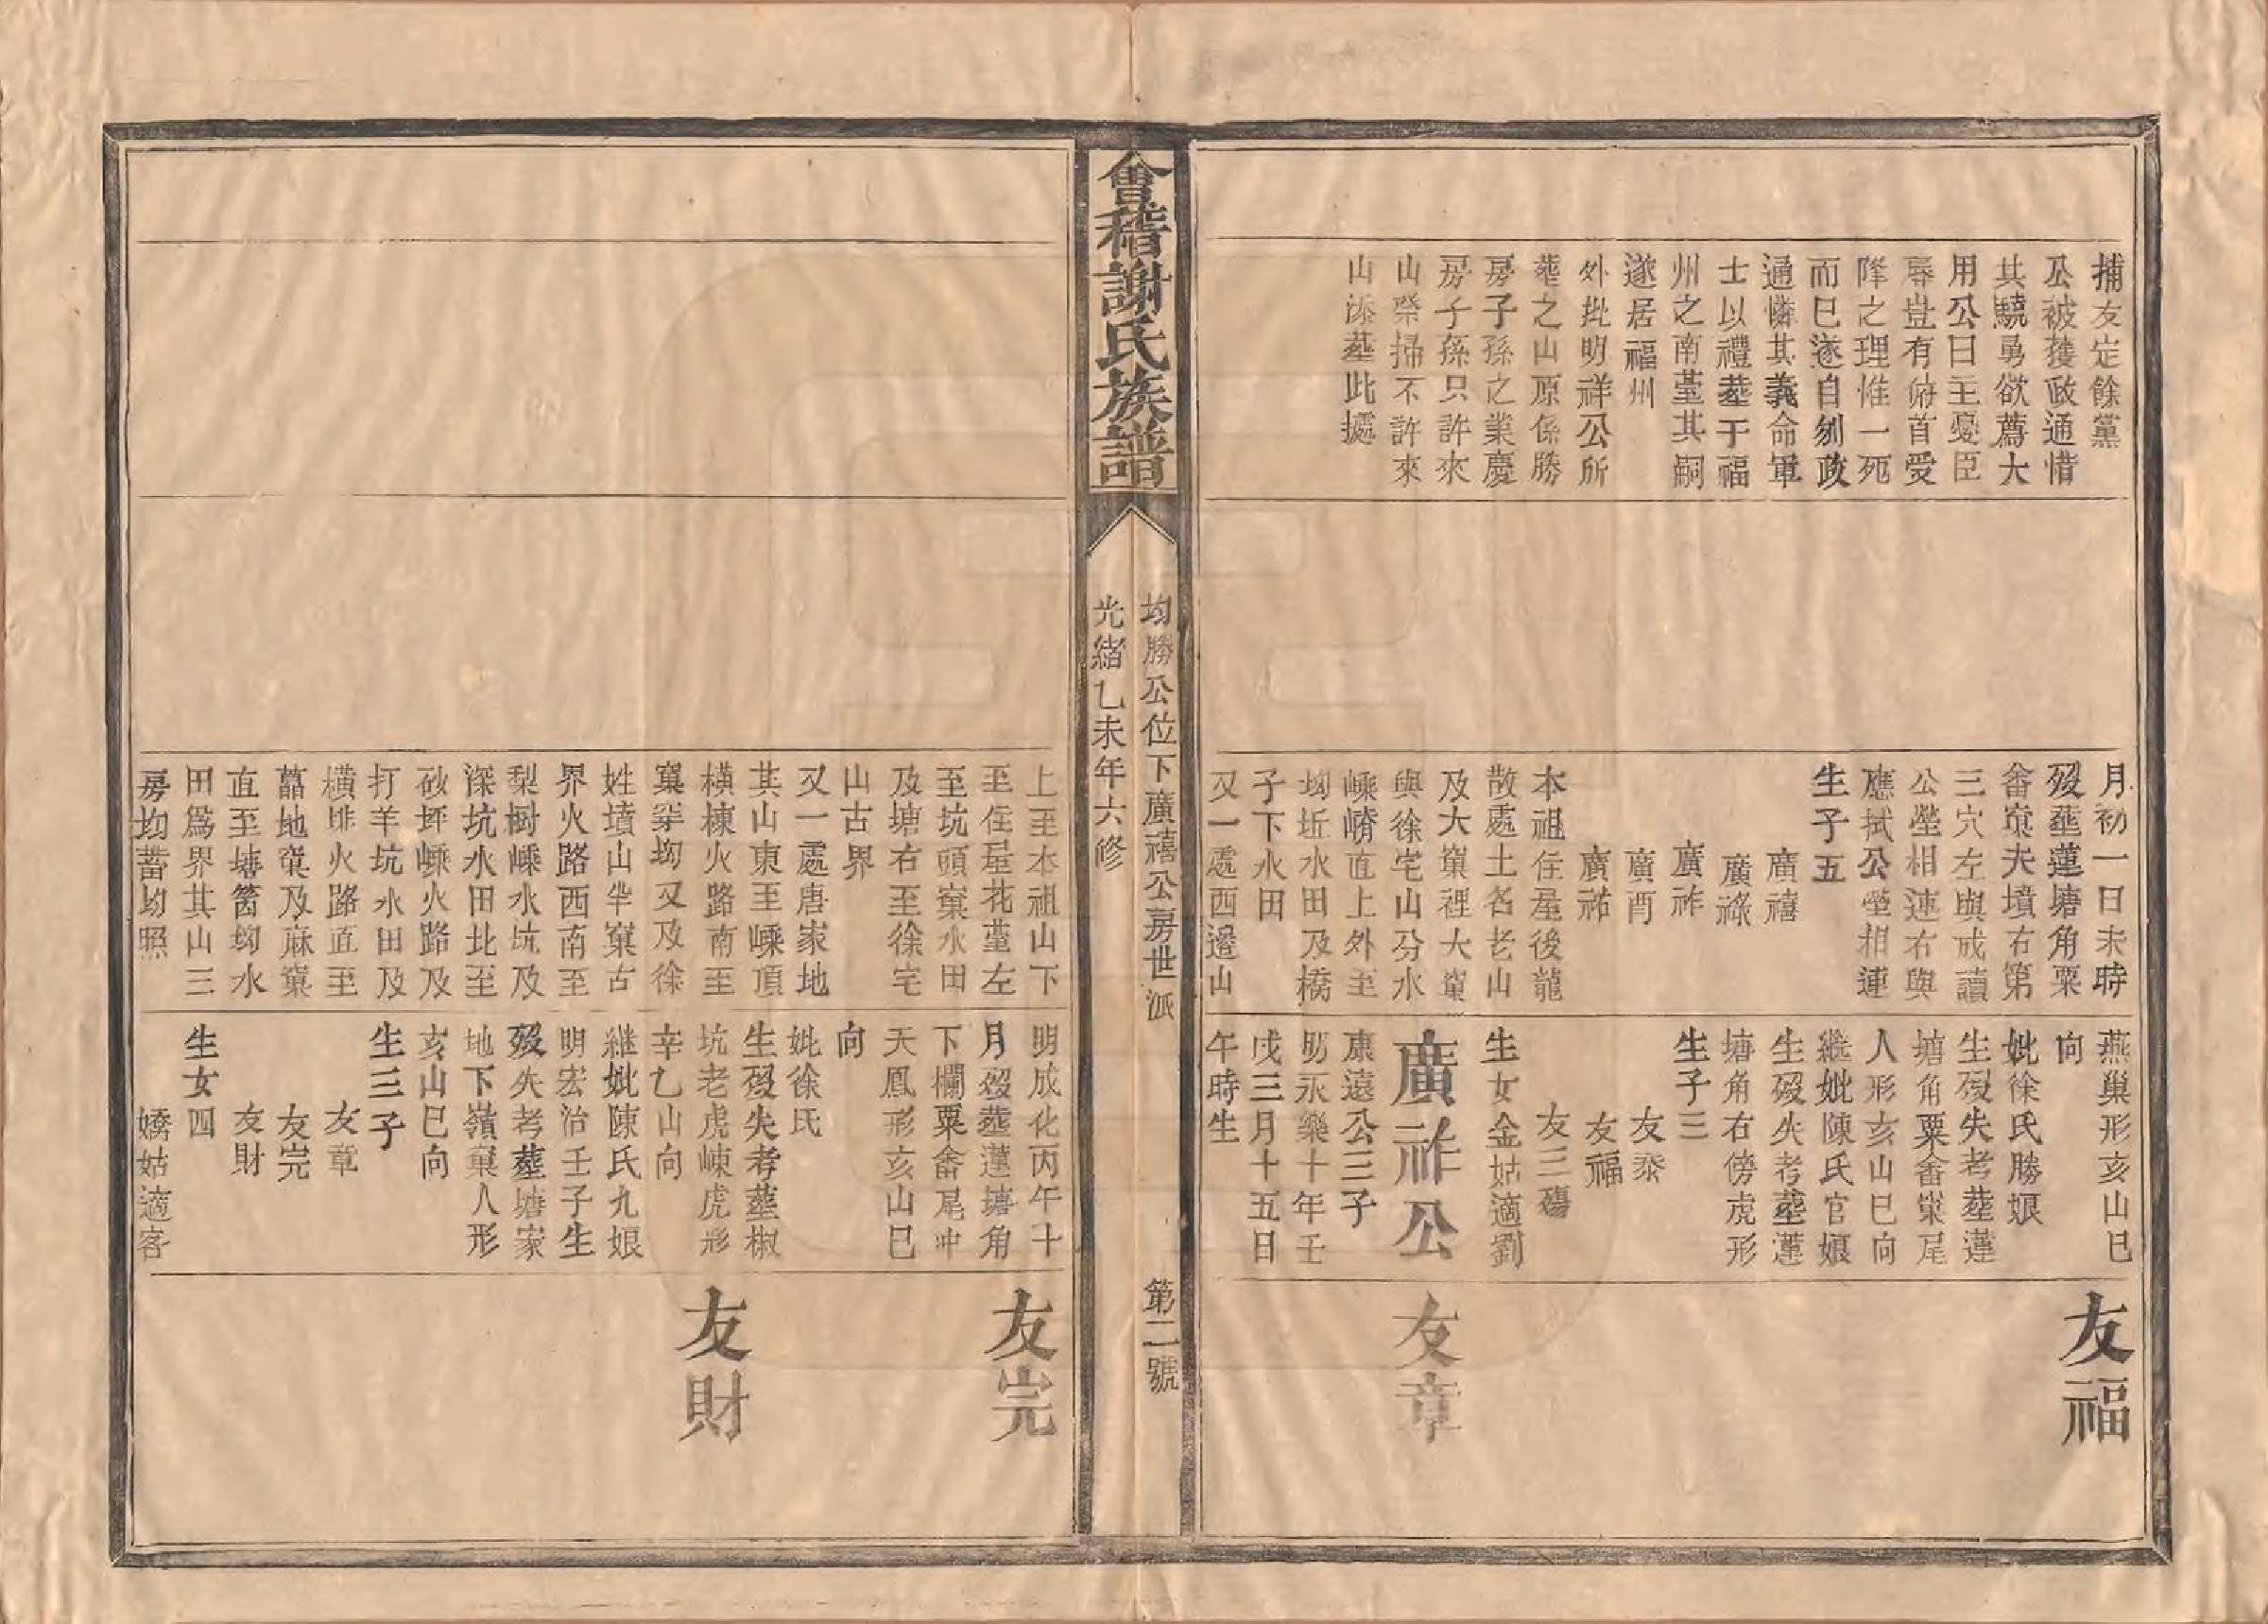 捕友定餘黨
公被獲政通惜
其驍勇欲薦大
用公曰主憂臣
辱豈有俯首受
降之理惟一死
而已遂自刎政
通憐其義命軍
士以禮塟于福
州之南臺其嗣
遂居福州
外批明祥公所
塟之山原係勝
房子孫之業慶
房子孫只許來
山祭掃不許來
山添墓此據
月初一日未時
歿塟蓮塘角粟
畲窠夫墳右第
三穴左與戒讀
公塋相連右與
應拭公塋相連
生子五
廣禧
廣祿
廣祚
廣酉
廣祐
本祖住屋後龍
故處土名老山
及大窠裡大窠
與徐宅山分水
嵊嵴直上外至
坳坵水田及橋
子下水田
又一處西邊山
燕巢形亥山巳
向
妣徐氏勝娘
生歿失考塟蓮
塘角粟畲窠尾
人形亥山巳向
繼妣陳氏官娘
生歿失考塟蓮
塘角右傍虎形
生子三
友泰
友福
友三殤
生女金姑適劉
廣祚公
康遠公三子
明永樂十年壬
戌三月十五日
午時生
友福
友章
會稽謝氏族譜
均勝公位下廣禧公房世派
第二號
光緒乙未年六修
上至本祖山下
至住屋花臺左
至坑頭窠水田
及塘右至徐宅
山古界
又一處唐家地
其山東至嵊頂
橫棟火路南至
窠𡨴坳又及徐
姓墳山半窠古
界火路西南至
梨樹嵊水坑及
深坑水田北至
砂坪嵊火路及
打羊坑水田及
橫排火路直至
菖地窠及麻窠
直至塘窩坳水
田爲界其山三
房均蓄均照
明成化丙午十
月歿塟蓮塘角
下欄粟畲尾冲
天鳳形亥山巳
向
妣徐氏
生歿失考塟椒
坑老虎崠虎形
辛乙山向
継妣陳氏九娘
明宏治壬子生
歿失考塟塘家
地下嶺窠人形
亥山巳向
生三子
友章
友完
友財
生女四
嬌姑適客
友完
友財